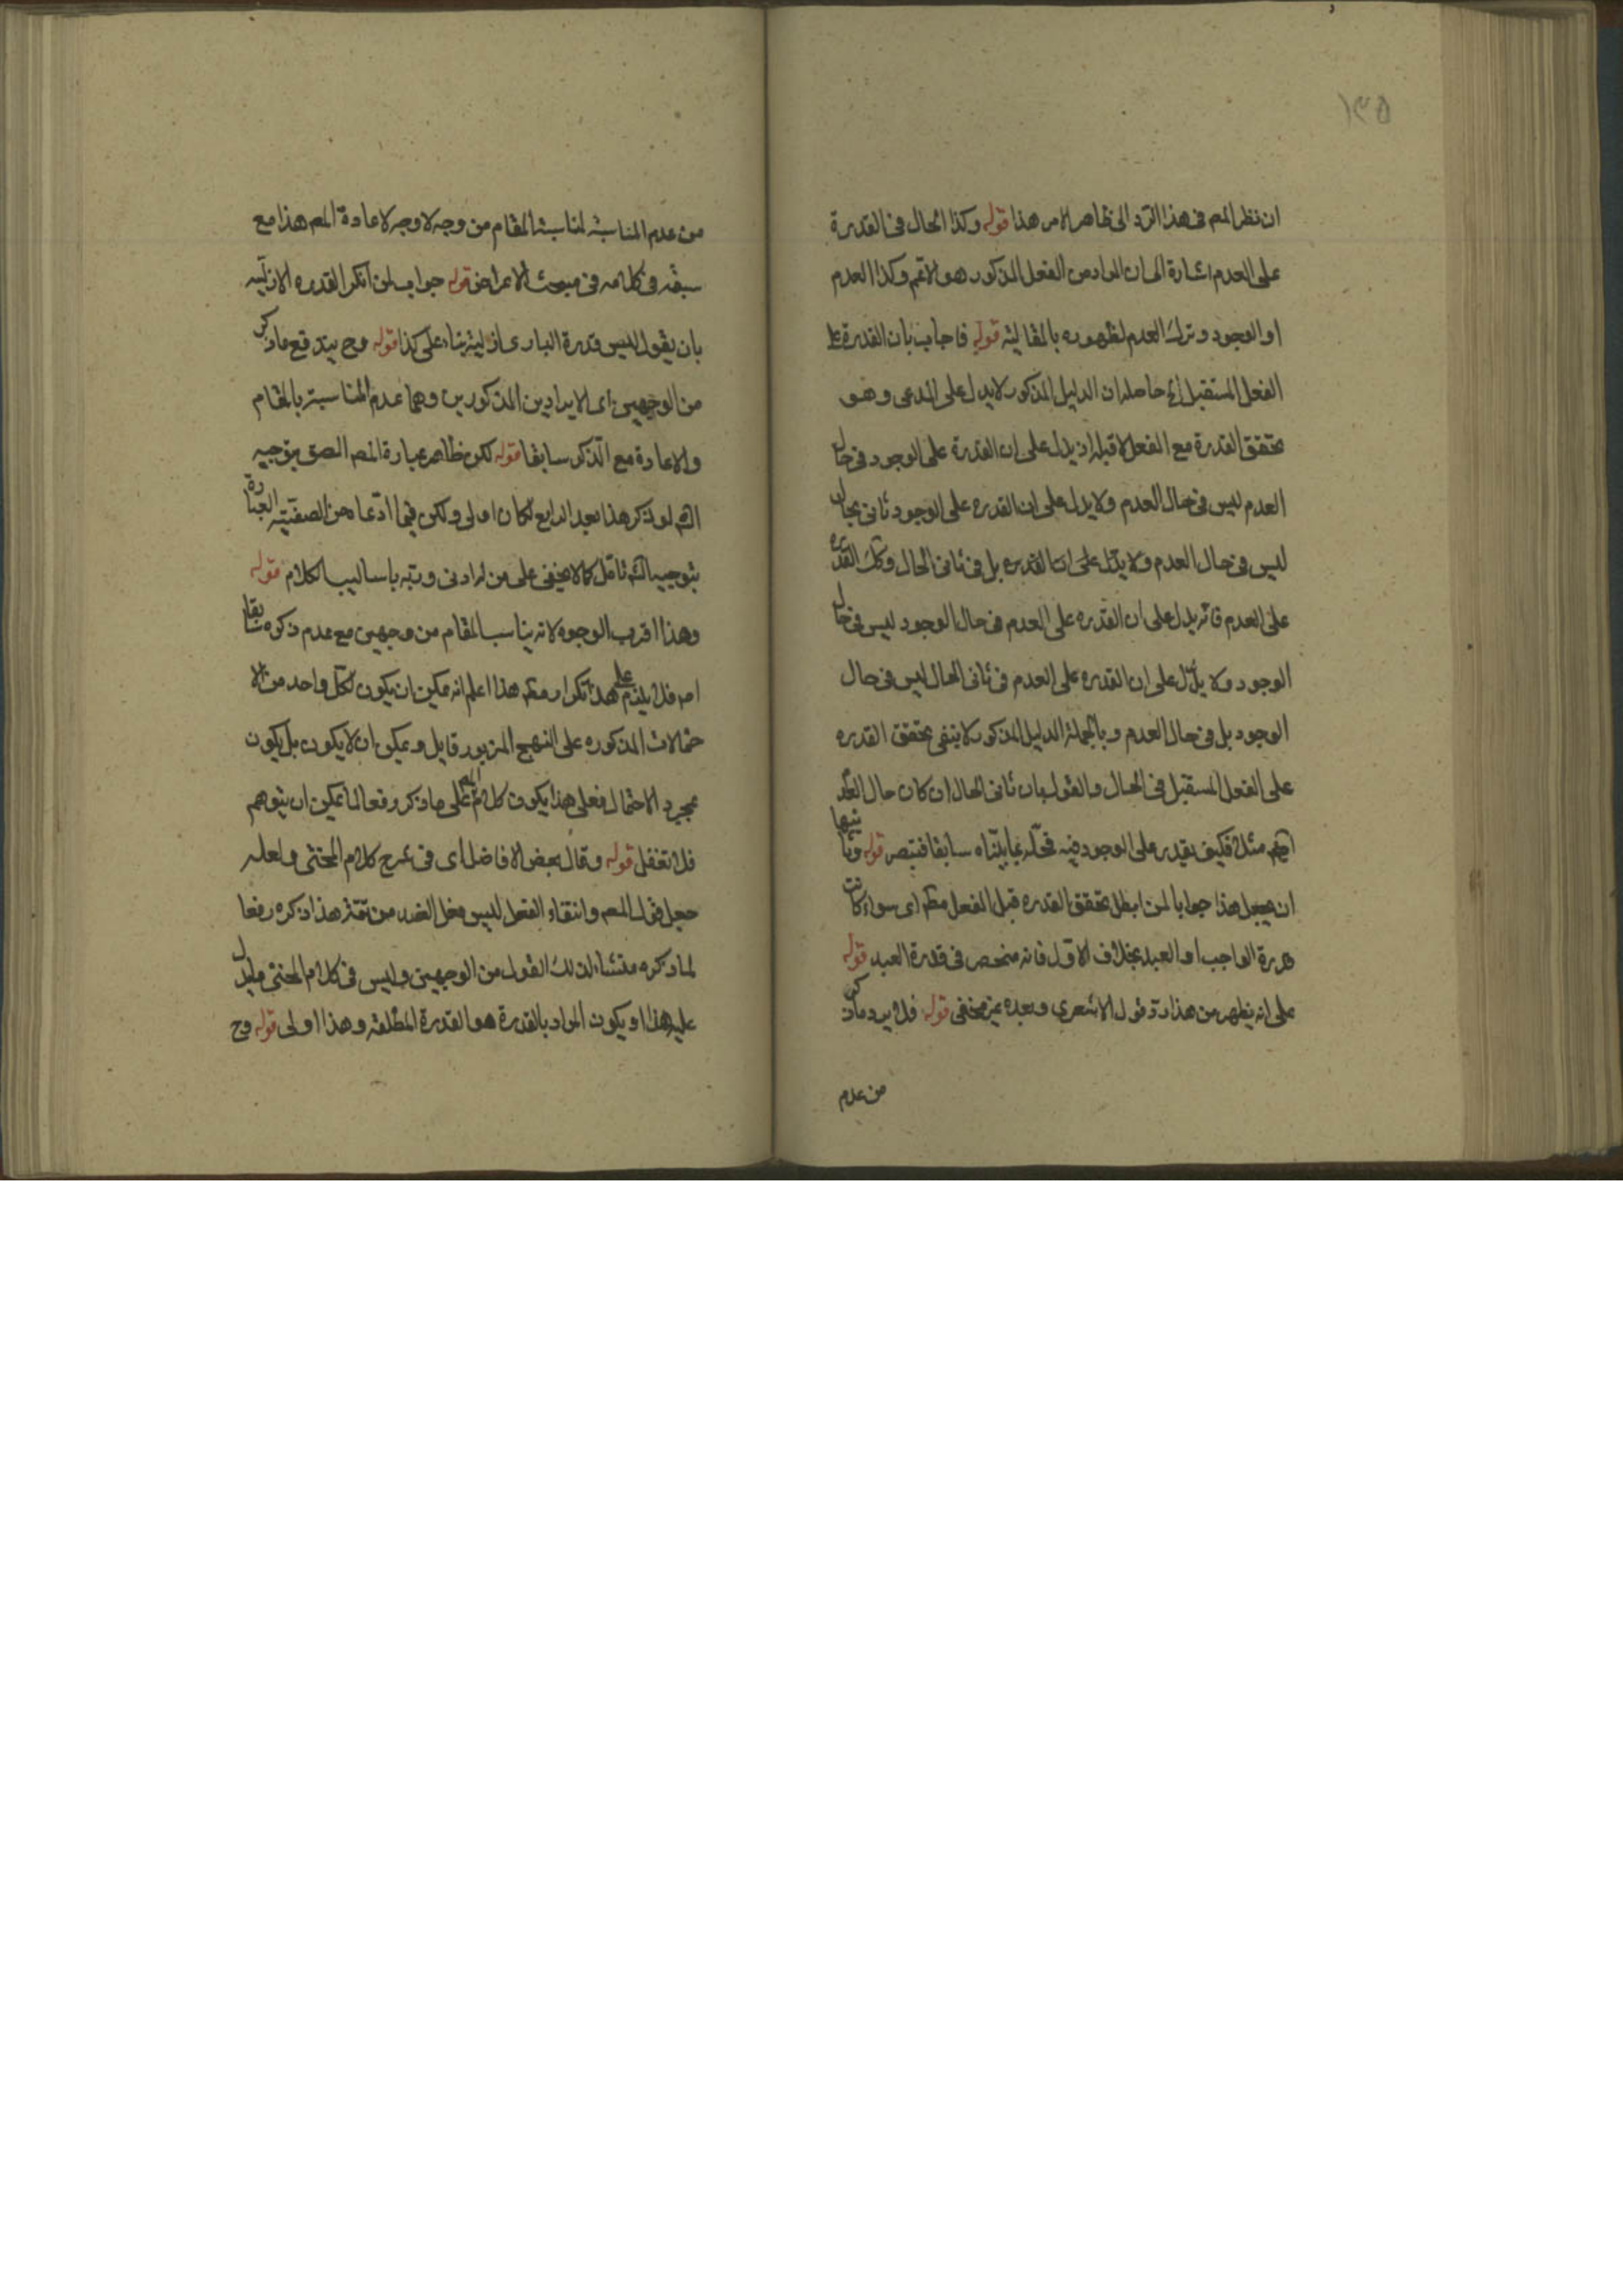 ١٣٥
ان نظر المم فى هذا الترد الى ظاهر الامر هذا قوله وكذا الحال فى القدرة
على العدم اشارة الى ان المراد من الفعل المذكور هو الاعم وكذا العدم
او الوجود وترك العدم لظهوره بالمقاليثه قوله فاجاب بان القدرة على
الفعل المستقبل الخ حاصله ان الدليل المذكور لا يدل على المدعى وهو
تحقق القدرة مع الفعل لا قبله اذ يدل على ان القدرة على الوجود فى حال
العدم ليس فى حال العدم ولا يدل على ان القدره على الوجود ثانى بحال
ليس فى حال العدم ولا يدل على ان القدره بل فى ثانى الحال وكك القدره
على العدم فانه يدل على ان القدره على العدم فى حال الوجود ليس فى حال
الوجود ولا يدل على ان القدره على العدم فى ثانى الحال ليس فى حال
الوجود بل فى حال العدم وبالجملة الدليل المذكور لا ينفى تحقق القدره
على الفعل المستقبل فى الحال والقول بان ثانى الحال ان كان حال العدم
مثلا فكيف يقدر على الوجود فيه فحله بما بيناه سابقا فتبصر قوله وثانيها
ان يجعل هذا جوابا لمن ابطل تحقق القدره قبل الفعل مطم اى سواء كانت
قدرة الواجب او العبد بخلاف الاول فانه منحصر فى قدرة العبد قوله
على انه يظهر من هذا رد قول الاشعرى وبعده غير مخفى قوله فلا يرد ما ذكر
من عدم
من عدم المناسبة لمناسبة المقام من وجه لا وجه لاعادة المم هذا مع
سبقه فى كلامه فى مبحث الاعراض قوله جواب لمن انكر القدره الازلية
بان يقول ليس قدرة البارى ازلية بناء على كذا قوله وح يندفع ما ذكر
من الوجهين اى الايرادين المذكورين وهما عدم المناسبة بالمقام
والاعادة مع الذكر سابقا قوله لكن ظاهر عبارة المم الصق بتوجيه
الشم لو ذكر هذا بعد الرابع لكان اولى ولكن فيما ادعاه من الصقية العبارة
بتوجيه الشم تامل كما لا يخفى على من له ادنى دربه باساليب الكلام قوله
وهذا اقرب الوجوه لانه يناسب المقام من وجهين مع عدم ذكره سابقا
اصم فلا يلزم على هذا تكرار مطم هذا اعلم انه يمكن ان يكون لكل واحد من الا
حتمالات المذكوره على النهج المزبور قايل ويمكن ان لا يكون بل يكون
بمجرد الاحتمال فعلى هذا يكون كلام المم على ما ذكر رفعا لما يمكن ان يتوهم
فلا تغفل قوله وقال بعض الافاضل اى فى شرح كلام المحشى ولعله
جعل قول المم وانتفاء الفعل ليس فعل الضد من تتمة هذا ذكره رفعا
لما ذكره منشاء لذلك القول من الوجهين وليس فى كلام المحشى ما يدل
عليه هذا او يكون المراد بالقدرة هو القدرة المطلقه وهذا اولى قوله وح